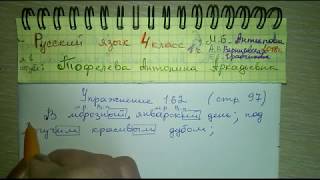 Русский язык 4 класс
М.Б. Антипова
А.В.
Тофелева Антонина Аркадьевна
Упражнение 162 (стр. 97)
В морозный, январский день; под
красивым дубом;